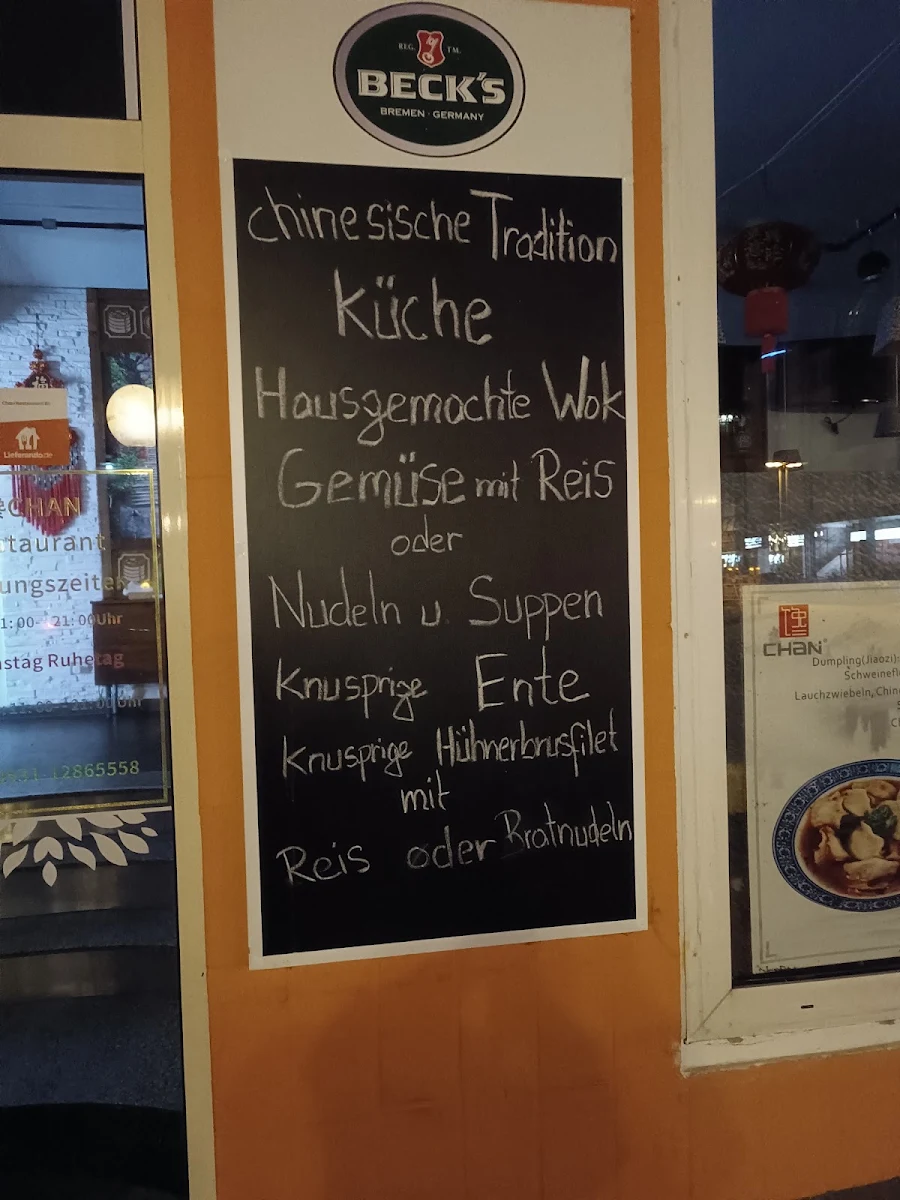 REG. TM.
BECK'S
BREMEN · GERMANY
chinesische Tradition
Küche
Hausgemachte Wok
Gemüse mit Reis
oder
Nudeln u. Suppen
Knusprige Ente
Knusprige Hühnerbrusfilet
mit
Reis oder Bratnudeln
Lieferando.de
CHAN
taurant
ungszeiten
1:00- 21:00Uhr
stag Ruhetag
21:00Uhr
12865558
CHAN
Dumpling(Jiaozi):
Schweinefle
Lauchzwiebeln, Chine